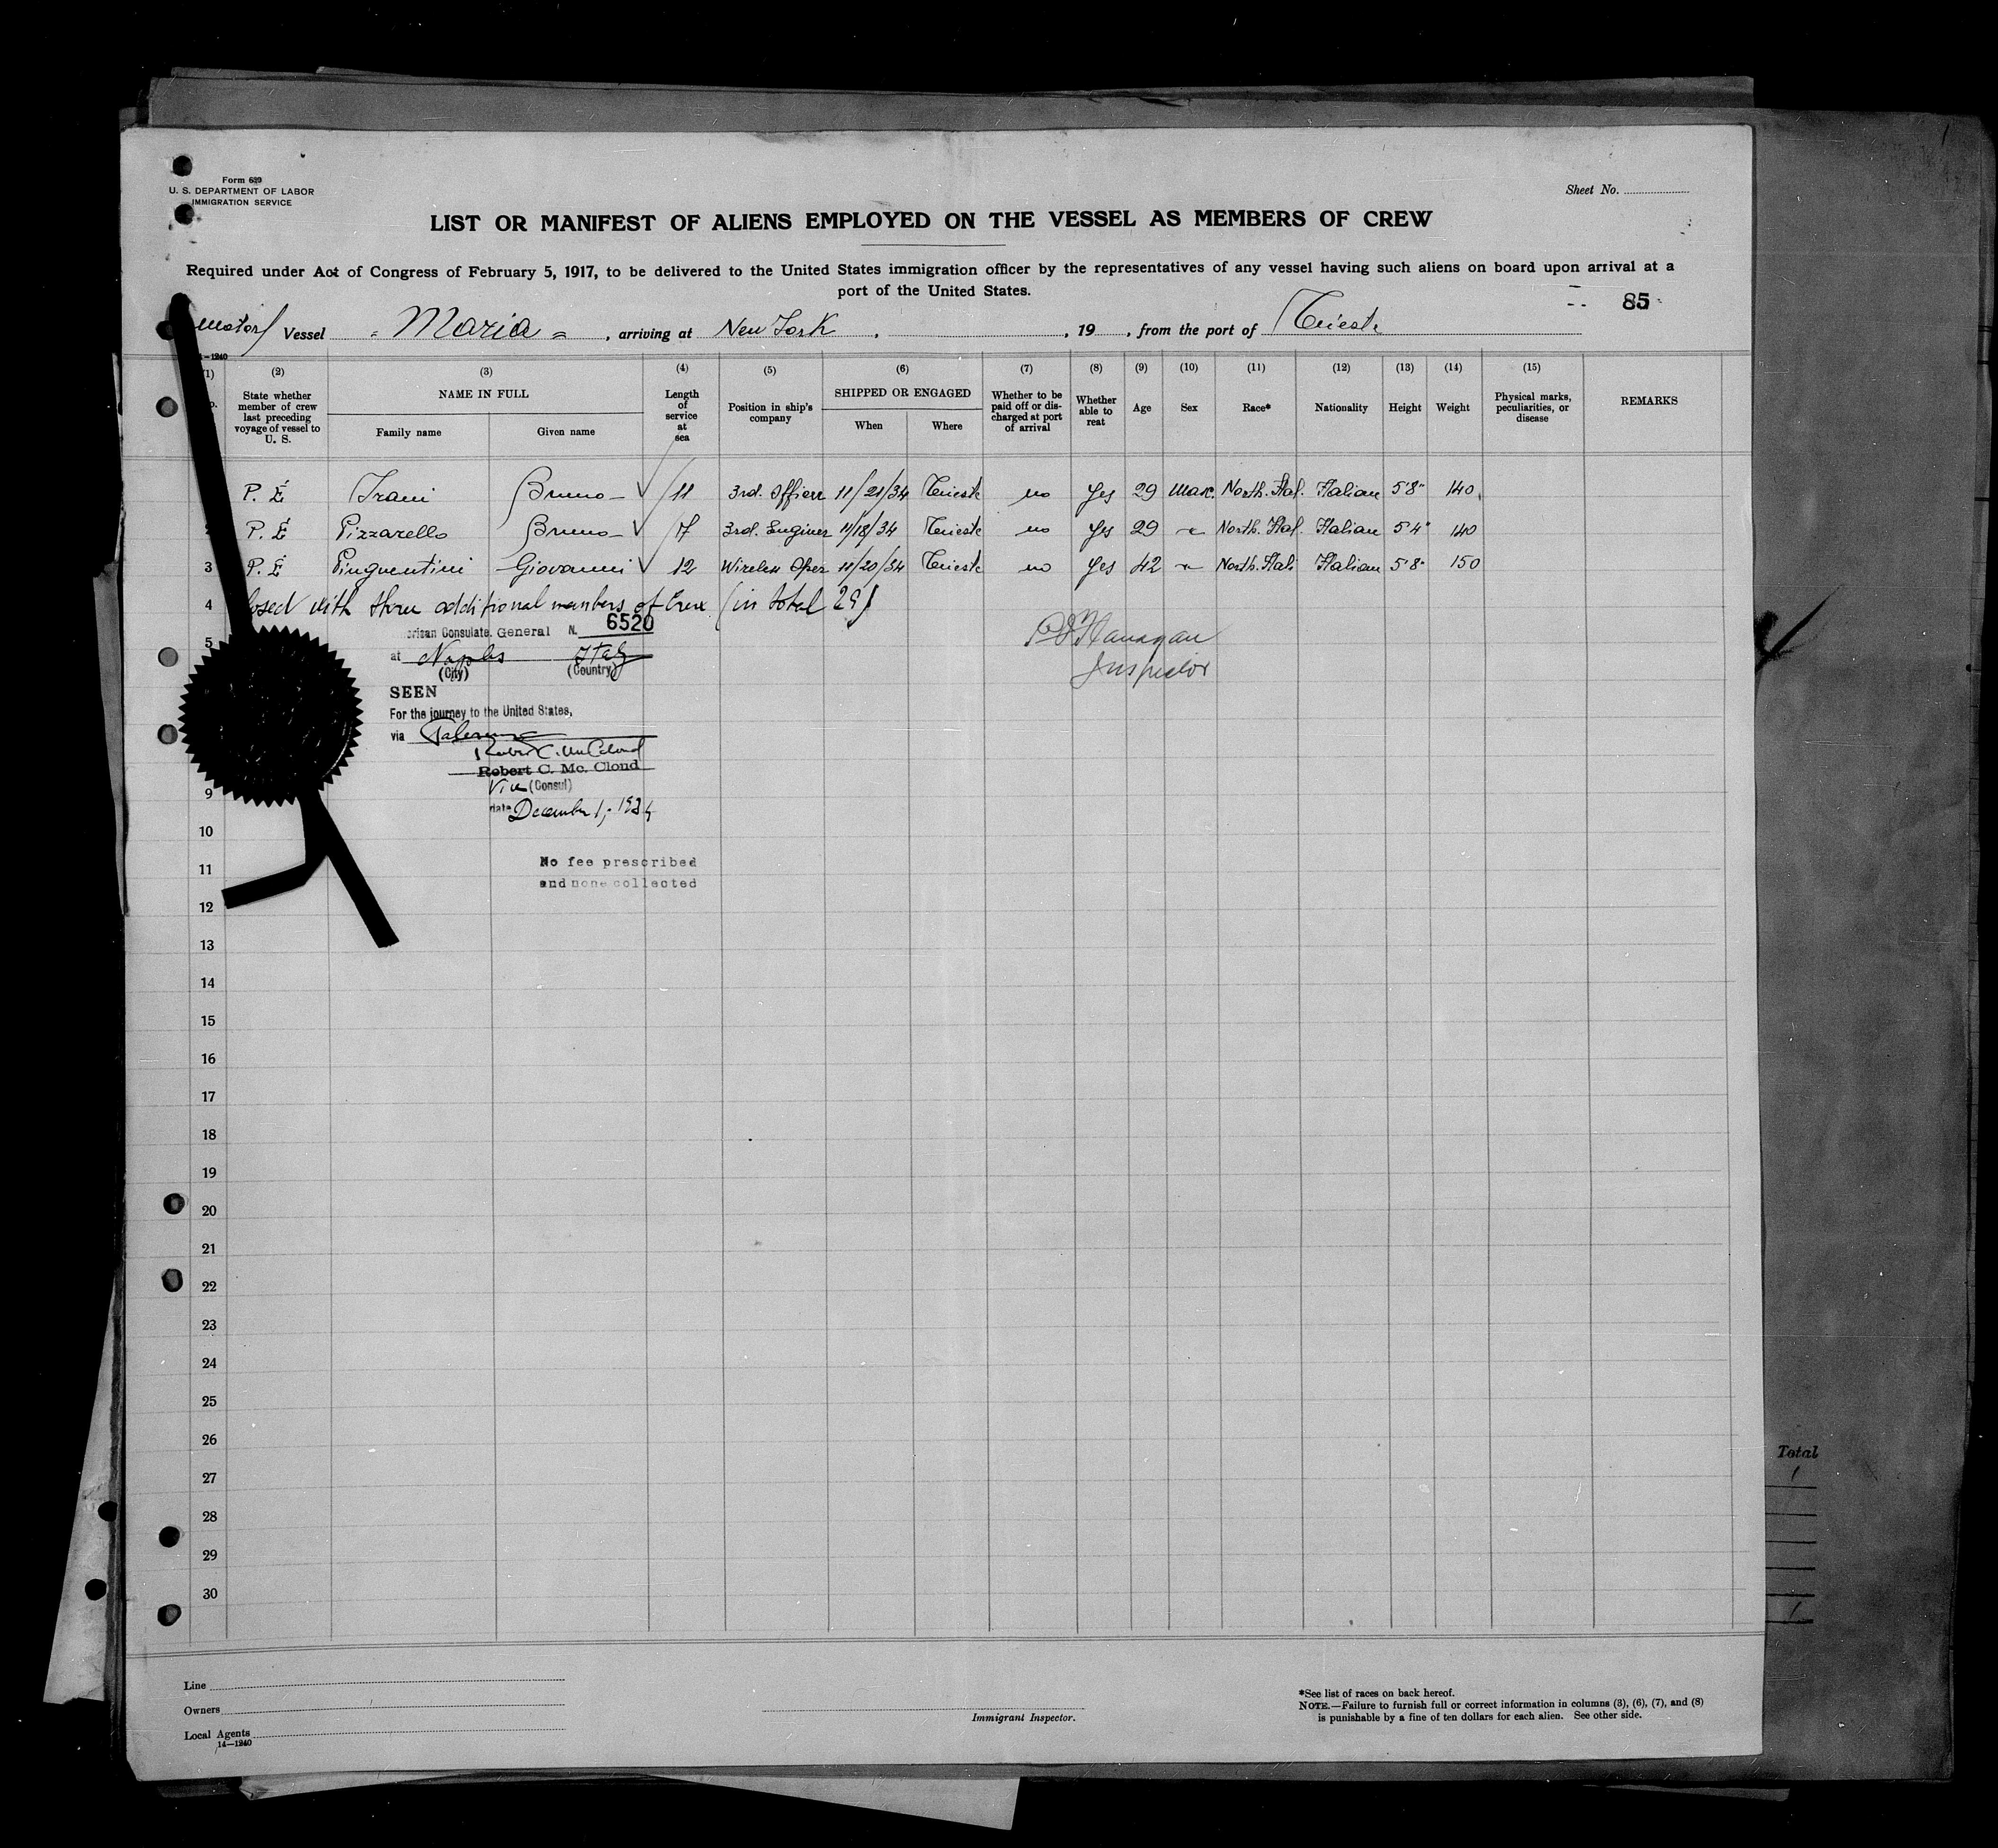 Form 689
U. S. DEPARTMENT OF LABOR
IMMIGRATION SERVICE
Sheet No.
LIST OR MANIFEST OF ALIENS EMPLOYED ON THE VESSEL AS MEMBERS OF CREW
Required under Act of Congress of February 5, 1917, to be delivered to the United States immigration officer by the representatives of any vessel having such aliens on board upon arrival at a
port of the United States.
85
motor Vessel Maria, arriving at New York, , 19 , from the port of Trieste
(2) (3) (4) (5) (6) (7) (8) (9) (10) (11) (12) (13) (14) (15)
State whether member of crew last preceding voyage of vessel to U. S. NAME IN FULL Family name Given name Length of service at sea Position in ship's company SHIPPED OR ENGAGED When Where Whether to be paid off or discharged at port of arrival Whether able to reat Age Sex Race* Nationality Height Weight Physical marks, peculiarities, or disease REMARKS
P. E Bruno 11 3rd. Officer 11/21/34 Trieste no yes 29 Masc. North. Ital. Italian 5'8" 140
P. E Pizzarello Bruno 17 3rd. Engineer 11/18/34 Trieste no yes 29 North. Ital. Italian 5'4" 140
3 P. E Pinguentini Giovanni 12 Wireless Oper 11/20/34 Trieste no yes 42 North. Ital. Italian 5'8" 150
4 with three additional members of Crew (in total 29)
5 American Consulate General N. 6520
at Naples Italy
(City) (Country)
Flanagan
Inspector
SEEN
For the journey to the United States,
via Palermo
Robert C. McCloud
Robert C. Mc. Cloud
Vice (Consul)
date December 1, 1934
No fee prescribed
and none collected
9
10
11
12
13
14
15
16
17
18
19
20
21
22
23
24
25
26
27
28
29
30
Total
Line
Owners
Local Agents
14—1240
Immigrant Inspector.
*See list of races on back hereof.
NOTE.—Failure to furnish full or correct information in columns (3), (6), (7), and (8)
is punishable by a fine of ten dollars for each alien. See other side.